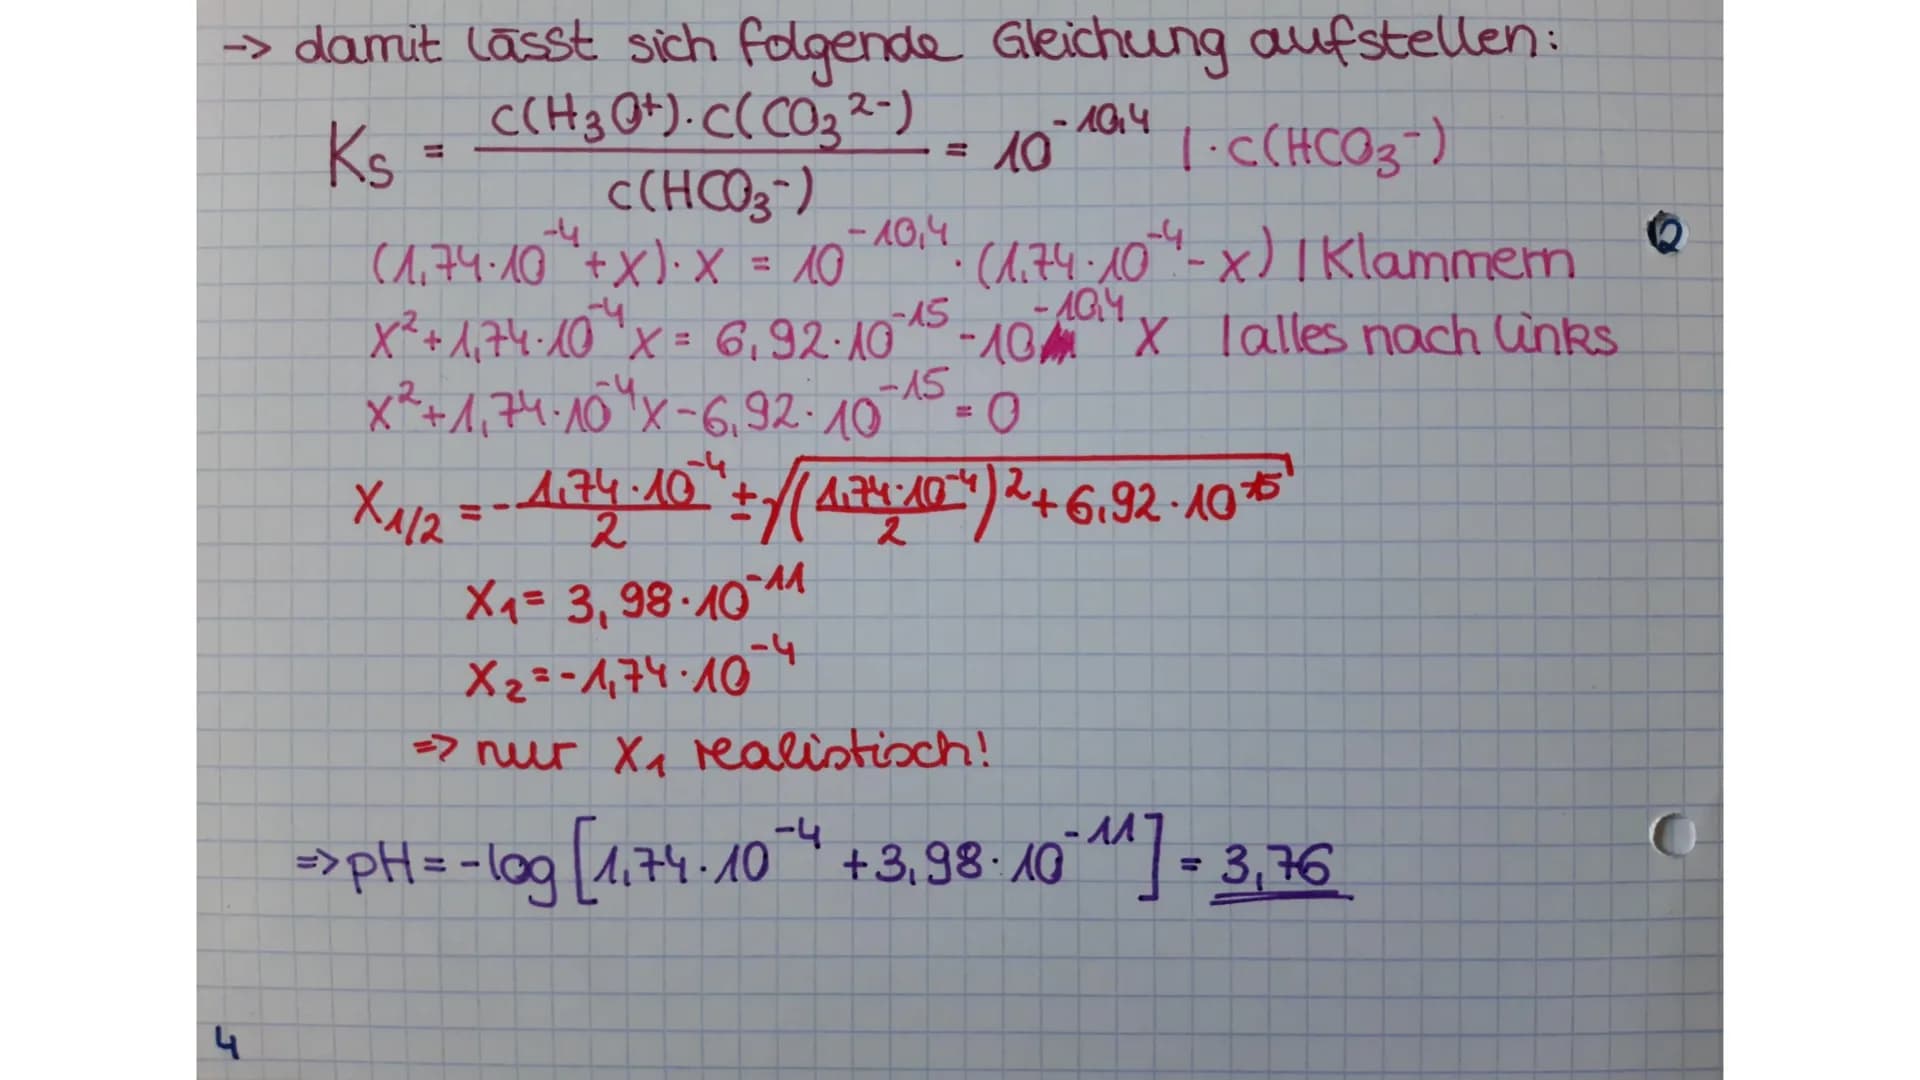 -> damit lässt sich folgende Gleichung aufstellen:
Ks = c(H₃O⁺)·c(CO₃²⁻) / c(HCO₃⁻) = 10^-10,4 | ·c(HCO₃⁻)
(1,74·10^-4 + x)·x = 10^-10,4 · (1,74·10^-4 - x) | Klammern
x² + 1,74·10^-4 x = 6,92·10^-15 - 10^-10,4 x | alles nach links
x² + 1,74·10^-4 x - 6,92·10^-15 = 0
x₁/₂ = - 1,74·10^-4 / 2 ± √((1,74·10^-4 / 2)² + 6,92·10^-15)
x₁ = 3,98·10^-11
x₂ = -1,74·10^-4
=> nur x₁ realistisch!
=> pH = -log [1,74·10^-4 + 3,98·10^-11] = 3,76
4